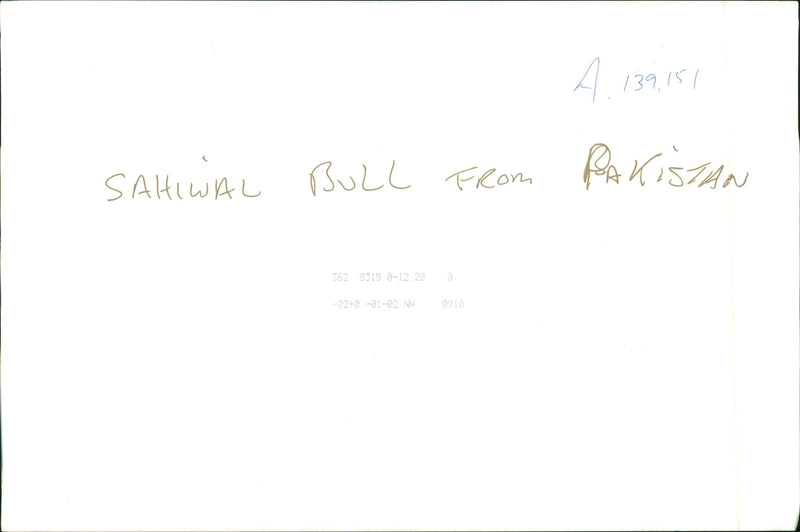 A. 139,151
SAHIWAL BULL FROM PAKISTAN
362 0315 0-12 20 0
-02+0 -01-02 NN 0910